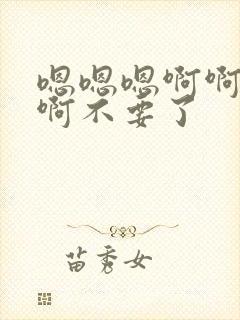 嗯嗯嗯啊啊
啊不要了
苗秀女